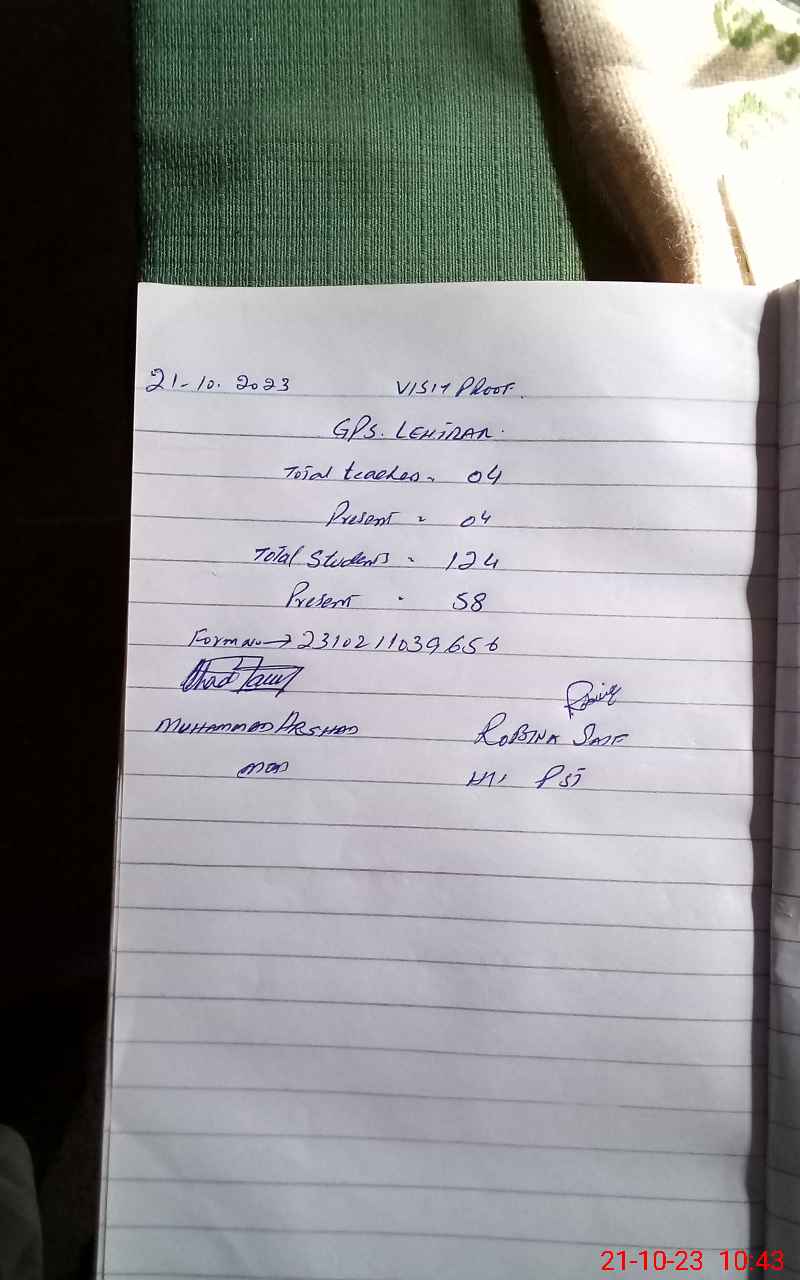 21-10.2023 VISIT PROOF.
GPS. LEHTRAR.
Total teacher = 04
Present = 04
Total Students = 124
Present = 58
Form No → 2310211039656
MUHAMMAD ARSHAD
ROBINA SAIF
PST
21-10-23 10:43